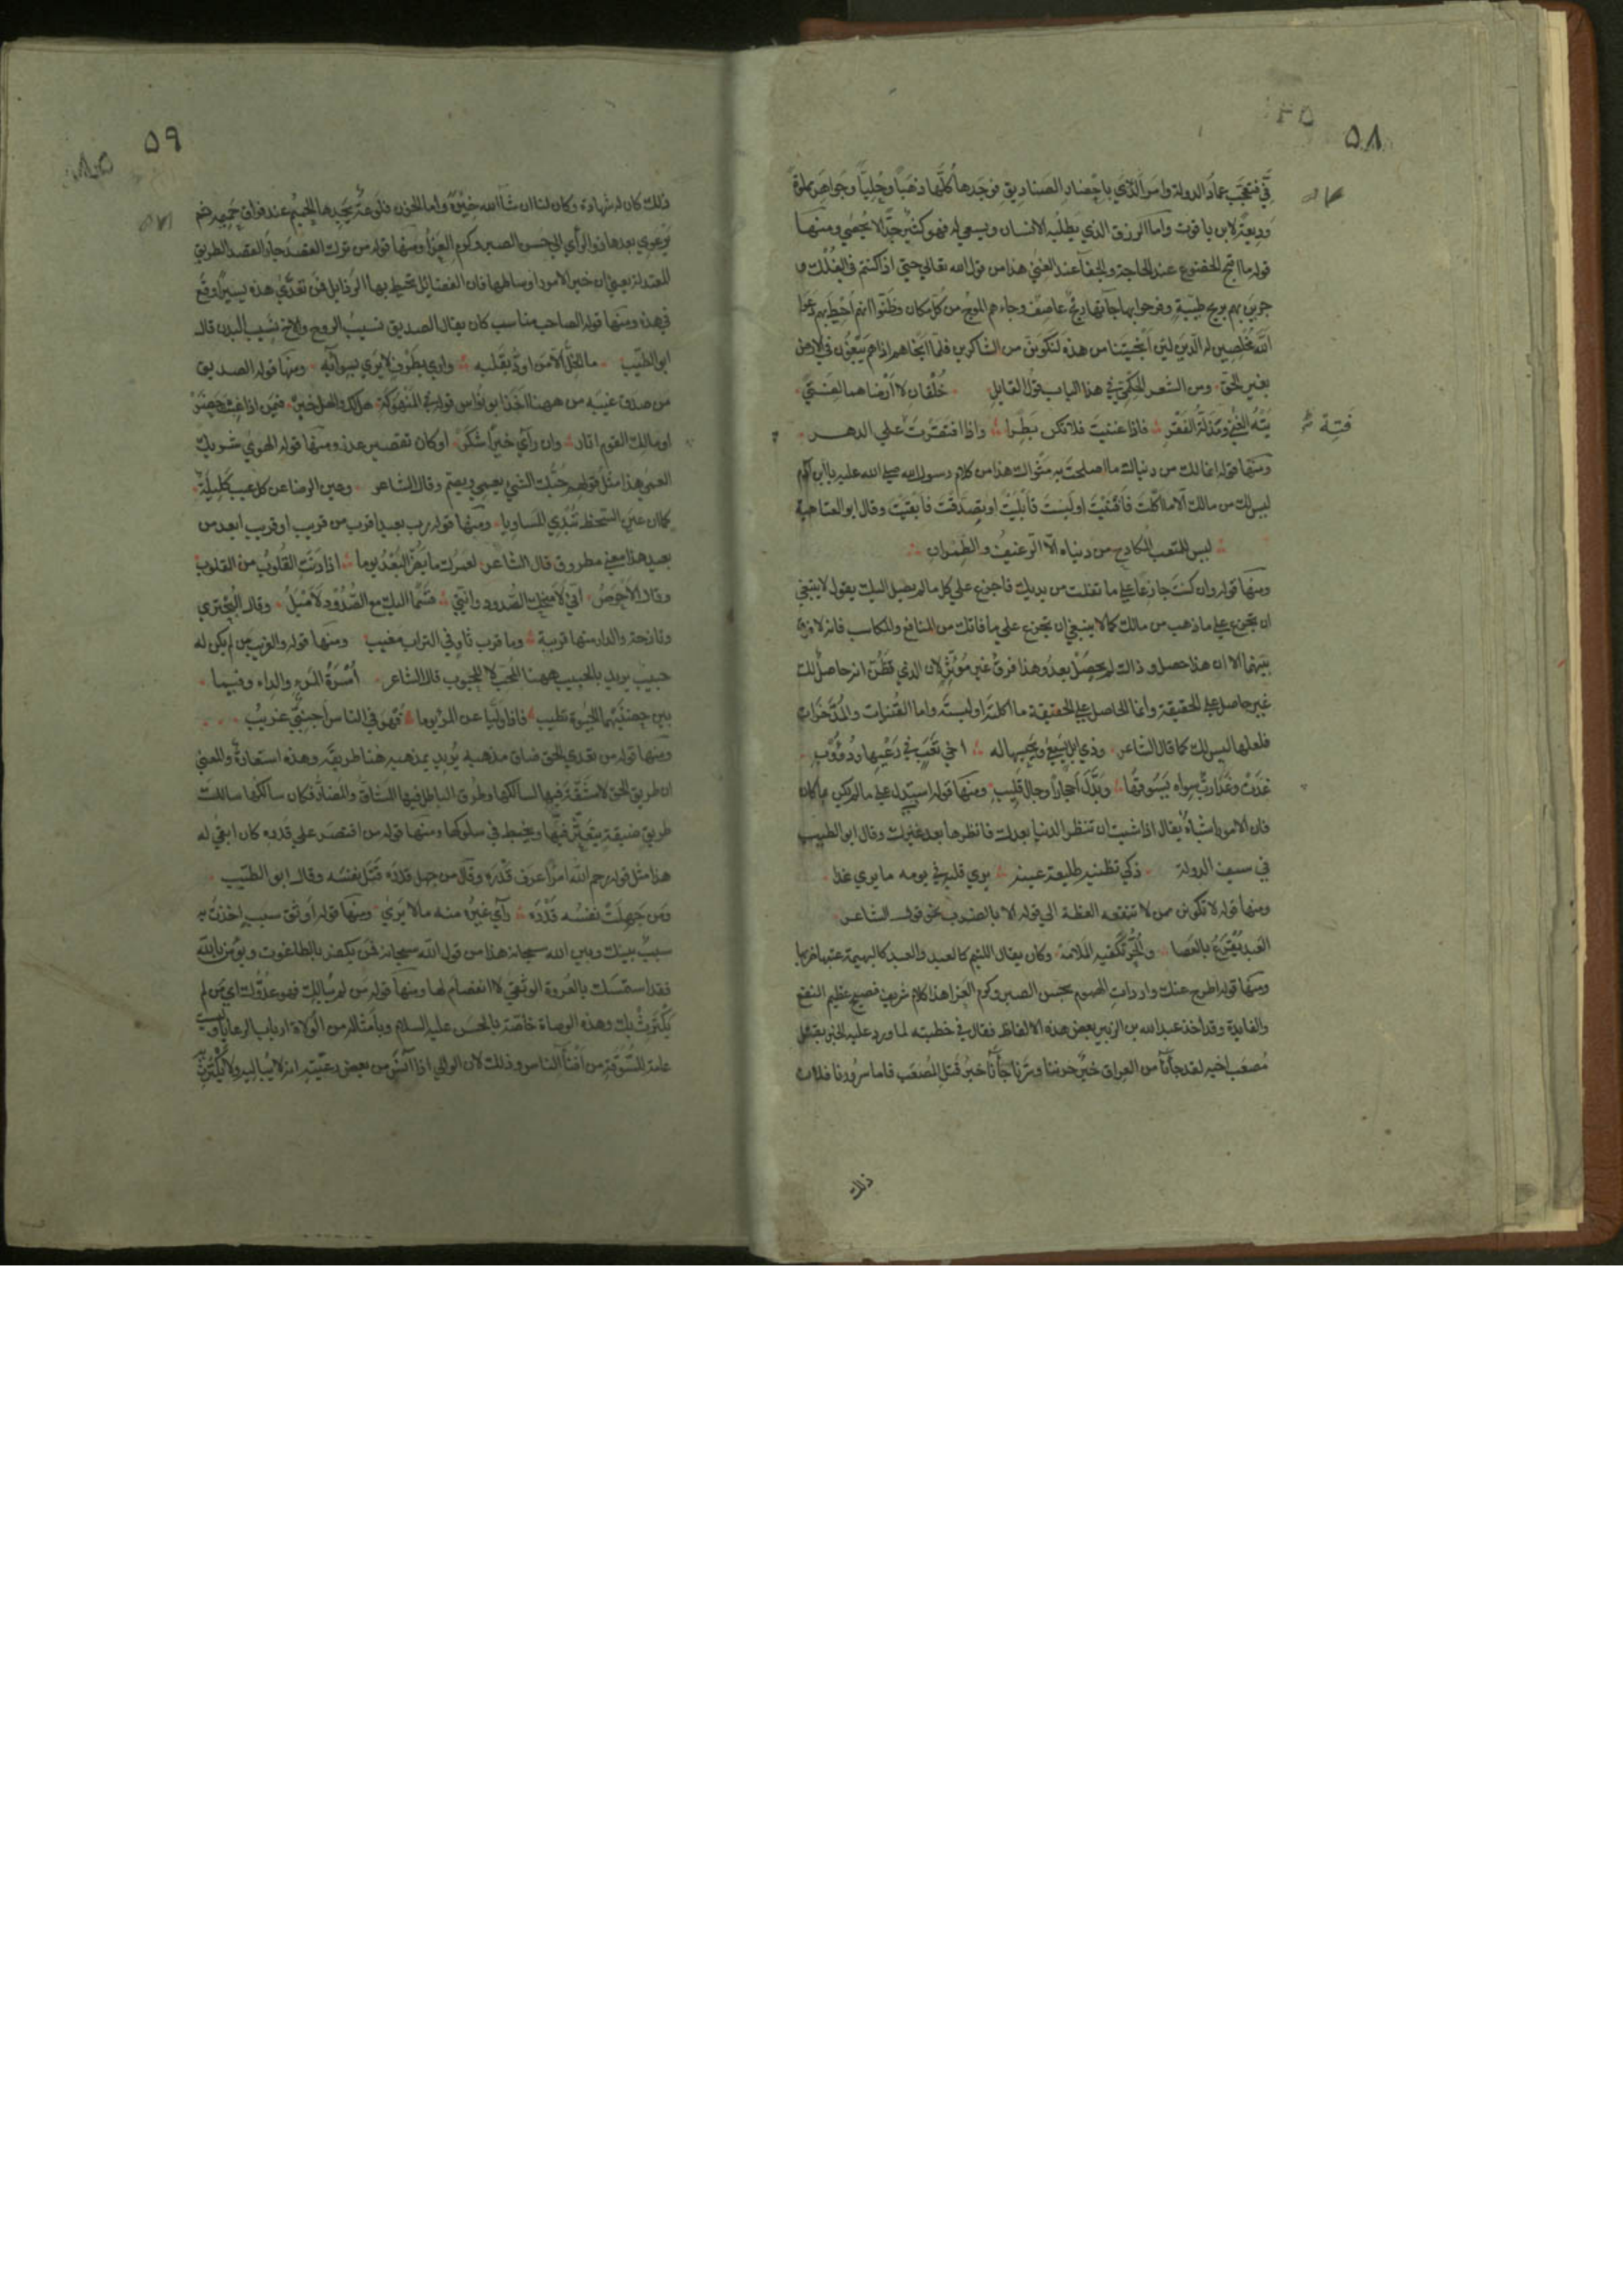 ٥٨
في فتعجب عماد الدولة وامر الذي باحضار الصناديق فوجدها كلها ذهبا وحليا وجواهر مملوة
وديعة لابن ياقوت واما الرزق الذي يطلبه الانسان ويسعي له فهو كثير جدا لا يحصي ومنها
قوله ما اقبح الخضوع عند الحاجة والجفا عند الغني هذا من قول الله تعالي حتي اذا كنتم في الفلك و
جرين بهم بريح طيبة وفرحوا بها جآءتها ريح عاصف وجاءهم الموج من كل مكان وظنوا انهم احيط بهم دعوا
الله مخلصين له الدين لئن انجيتنا من هذه لنكونن من الشاكرين فلما انجاهم اذا هم يبغون في الارض
بغير الحق ومن الشعر الحكمي في هذا الباب قول القايل خلقان لا ارضاهما لفتي
فتية
تيه الغني ومذلة الفقر فاذا غنيت فلا تكن بطرا واذا افتقرت فته علي الدهر
ومنها قوله انما لك من دنياك ما اصلحت به مثواك هذا من كلام رسول الله صلي الله عليه يا ابن آدم
ليس لك من مالك الا ما اكلت فافنيت او لبست فابليت او تصدقت فابقيت وقال ابو العتاهية
ليس للمتعب المكادح من دنياه الا الرغيف والطمران
ومنها قوله وان كنت جازعا علي ما تفلت من يديك فاجزع علي كل ما لم يصل اليك يقول لا ينبغي
ان تجزع علي ما ذهب من مالك كما لا ينبغي ان تجزع علي ما فاتك من المنافع والمكاسب فانه لا فرق
بينهما الا ان هذا حصل و ذاك لم يحصل بعد وهذا فرق غير موثر لان الذي تظن انه حاصل لك
غير حاصل علي الحقيقة وانما الحاصل علي الحقيقة ما اكلته او لبسته واما القنيات والمدخرات
فلعلها ليس لك كما قال الشاعر وذي ابل يسقي ويحسبها له اخي تعب في رعيها ودؤوب
غدت وغدا رب سواه يسوقها وبدل احجارا وجال قليب ومنها قوله استدل علي ما لم يكن بما كان
فان الامور اشباه يقال اذا شيت ان تنظر الدنيا بعدك فانظرها بعد غيرك وقال ابو الطيب
في سيف الدولة ذكي تظنيه طليعة عينه يري قلبه في يومه ما يري غدا
ومنها قوله لا تكونن ممن لا تنفعه العظة الي قوله الا بالضرب نحو قول الشاعر
العبد يقرع بالعصا والحر تكفيه الملامة وكان يقال اللئيم كالعبد والعبد كالبهيمة عتبها ضربها
ومنها قوله اطرح عنك واردات الهموم بحسن الصبر وكرم العزا هذا كلام شريف فصيح عظيم النفع
والفايدة وقد اخذ عبد الله بن الزبير بعض هذه الالفاظ فقال في خطبته لما ورد عليه الخبر بقتل
مصعب اخيه لقد جآنا من العراق خبر حزننا وسرنا جآنا خبر قتل المصعب فاما سرورنا فلان
ذلك
٥٩
ذلك كان له شهادة وكان لنا ان شآ الله خيرة واما الحزن فلوعة يجدها الحميم عند فراق حميمه ثم
يرعوي بعدها ذو الرأي الي حسن الصبر وكرم العزا ومنها قوله من ترك القصد جار القصد الطريق
المعتدلة يعني ان خير الامور اوساطها فان الفضائل تحيط بها الرذايل فمن تعدي هذه يسيرا وقع
في هذه ومنها قوله الصاحب مناسب كان يقال الصديق نسيب الروح والاخ نسيب البدن قال
ابو الطيب ما الخل الا من اود بقلبه واري بطرف لا يري بسوآئه ومنها قوله الصديق
من صدق غيبه من ههنا اخذ ابو نواس قوله في المنهوكة هل لك والهل خير فيمن اذا غبت حضر
او ما لك القوم اثار وان رآي خيرا شكر او كان تقصير عذر ومنها قوله الهوي شريك
العمي هذا مثل قولهم حبك الشي يعمي ويصم وقال الشاعر وعين الرضا عن كل عيب كليلة
كما ان عين السخط تبدي المساويا ومنها قوله رب بعيد اقرب من قريب او قريب ابعد من
بعيد هذا معني مطروق قال الشاعر لعمرك ما يضر البعد يوما اذا دنت القلوب من القلوب
وقال الاحوص اني لامنحك الصدود وانني قسما اليك مع الصدود لاميل وقال البحتري
ونازحة والدار منها قريبة وما قرب ثاو في التراب مغيب ومنها قوله والغريب من لم يكن له
حبيب يريد بالحبيب ههنا المحب لا المحبوب قال الشاعر اسرة المرء والداه وفيما
بين حضنيهما الحيوة تطيب فاذا وليا عن المرء يوما فهو في الناس اجنبي غريب
ومنها قوله من تعدي الحق ضاق مذهبه يريد بمذهبه هنا طريقه وهذه استعارة والمعني
ان طريق الحق لا مشقة فيها لسالكها وطرق الباطل فيها المشاق والمضار فكان سالكها سالك
طريق ضيقة يتعثر فيها ويخبط في سلوكها ومنها قوله من اقتصر علي قدره كان ابقي له
هذا مثل قوله رحم الله امرأ عرف قدره وقال من جهل قدره قتل نفسه وقال ابو الطيب
ومن جهلت نفسه قدره رآي غيره منه ما لا يري ومنها قوله اوثق سبب اخذت به
سبب بينك وبين الله سبحانه هذا من قول الله سبحانه فمن يكفر بالطاغوت ويؤمن بالله
فقد استمسك بالعروة الوثقي لا انفصام لها ومنها قوله من لم يبالك فهو عدوك اي من لم
يكترث بك وهذه الوصاة خاصة بالحسن عليه السلام وبامثاله من الولاة ارباب الرعايا وليست
عامة للسوقة من افنآ الناس وذلك لان الوالي اذا آنس من بعض رعيته انه لا يباليه ولا يكترث